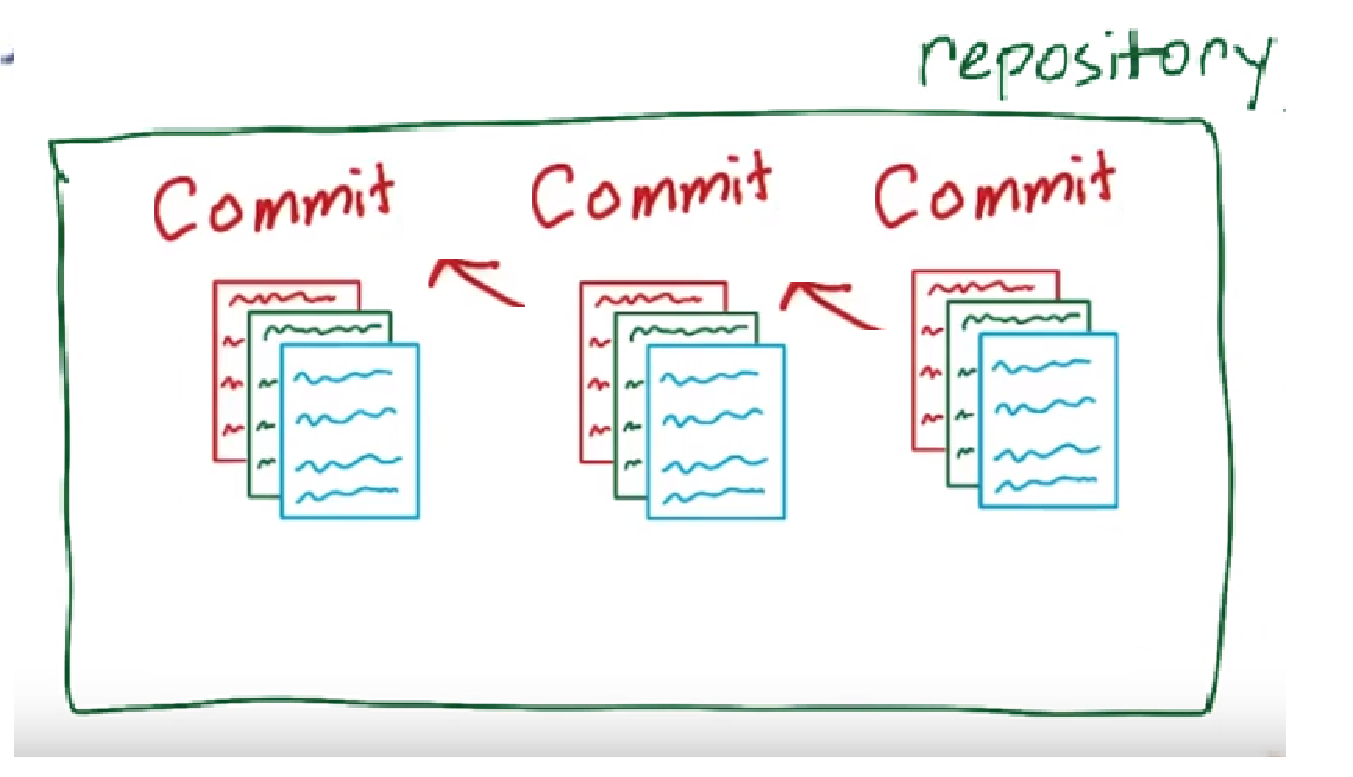 repository
Commit Commit Commit